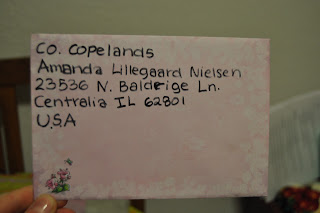 CO. Copelands
Amanda Lillegaard Nielsen
23536 N. Baldrige Ln.
Centralia IL 62801
USA